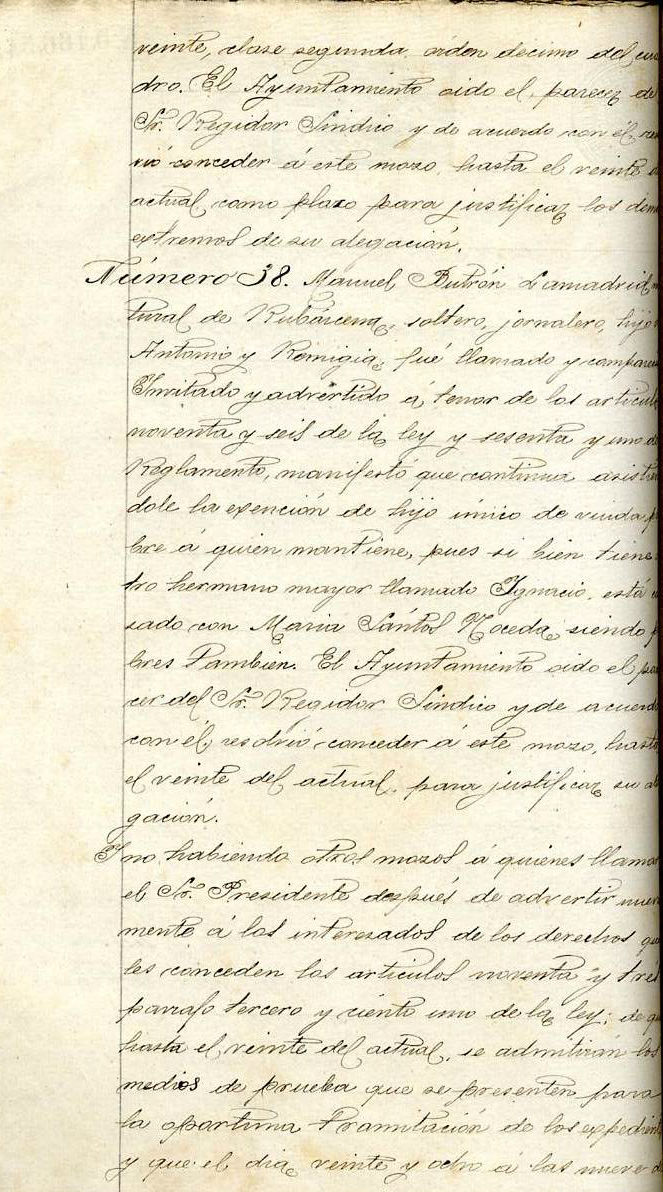 veinte, clase segunda orden décimo del cua
dro. El Ayuntamiento oido el parecer del
Sr. Regidor Síndico y de acuerdo con él re
vió conceder á este mozo, hasta el veinte d
actual como plazo para justificar los dem
extremos de su alegación.
Número 38. Manuel Butrón Lamadrid, n
tural de Rubárcena, soltero, jornalero, hijo
Antonio y Remigia, fué llamado y compare
Invitado y advertido á tenor de los articul
noventa y seis de la ley y sesenta y uno de
Reglamento, manifestó que continua asistie
dole la exención de hijo único de viuda p
bre á quien mantiene, pues si bien tiene
tro hermano mayor llamado Ygnacio, está c
sado con Maria Santos Noceda, siendo p
bres tambien. El Ayuntamiento oido el pa
cer del Sr. Regidor Sindico y de acuerd
con él, resolvió conceder á este mozo, hasta
el veinte del actual, para justificar su al
gación.
Y no habiendo otros mozos á quienes llamar
el Sr. Presidente después de advertir nuev
mente á los interesados de los derechos qu
les conceden los articulos noventa y tres
parrafo tercero y ciento uno de la ley; de qu
hasta el veinte del actual, se admitirán los
medios de prueba que se presenten para
la oportuna tramitación de los expedient
y que el dia veinte y ocho á las nueve d